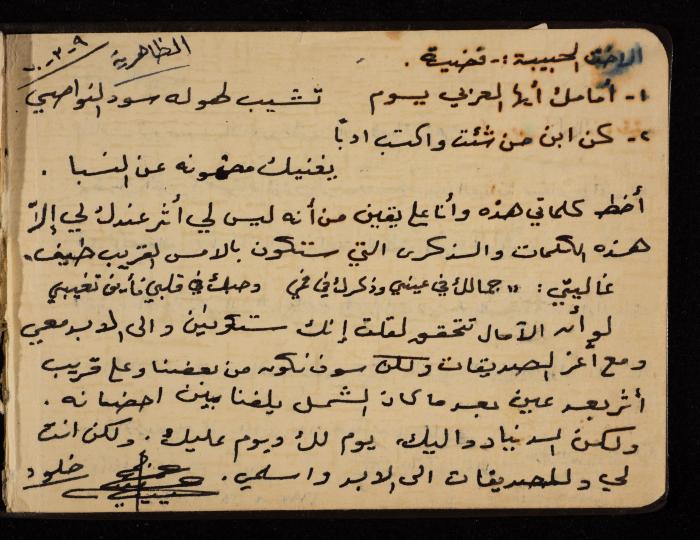 الظاهرية
٩-٣-
الاخت الحبيبة :- قضية .
١- أمامك أيها العربي يوم تشيب لهوله سود النواصي
٢- كن ابن من شئت واكتب ادبًا
يغنيك مضمونه عن النسبا .
أخط كلماتي هذه وأنا على يقين من أنه ليس لي أثر عندك لي إلاّ
هذه الكلمات والذكرى التي ستكون بالامس القريب طيف .
غاليتي : " جمالك في عيني وذكرك في فمي وحبك في قلبي فأين تغيبي
لو أن الآمال تتحقق لقلت إنك ستكونين والى الابد معي
ومع أعز الصديقات ولكن سوف نكون من بعضنا وعلى قريب
أثر بعد عين بعد ما كان الشمل يلفنا بين احضانه .
ولكن الدنيا دواليك يوم لك ويوم عليك . ولكن انت
لي وللصديقات الى الابد واسلمي .
خلود